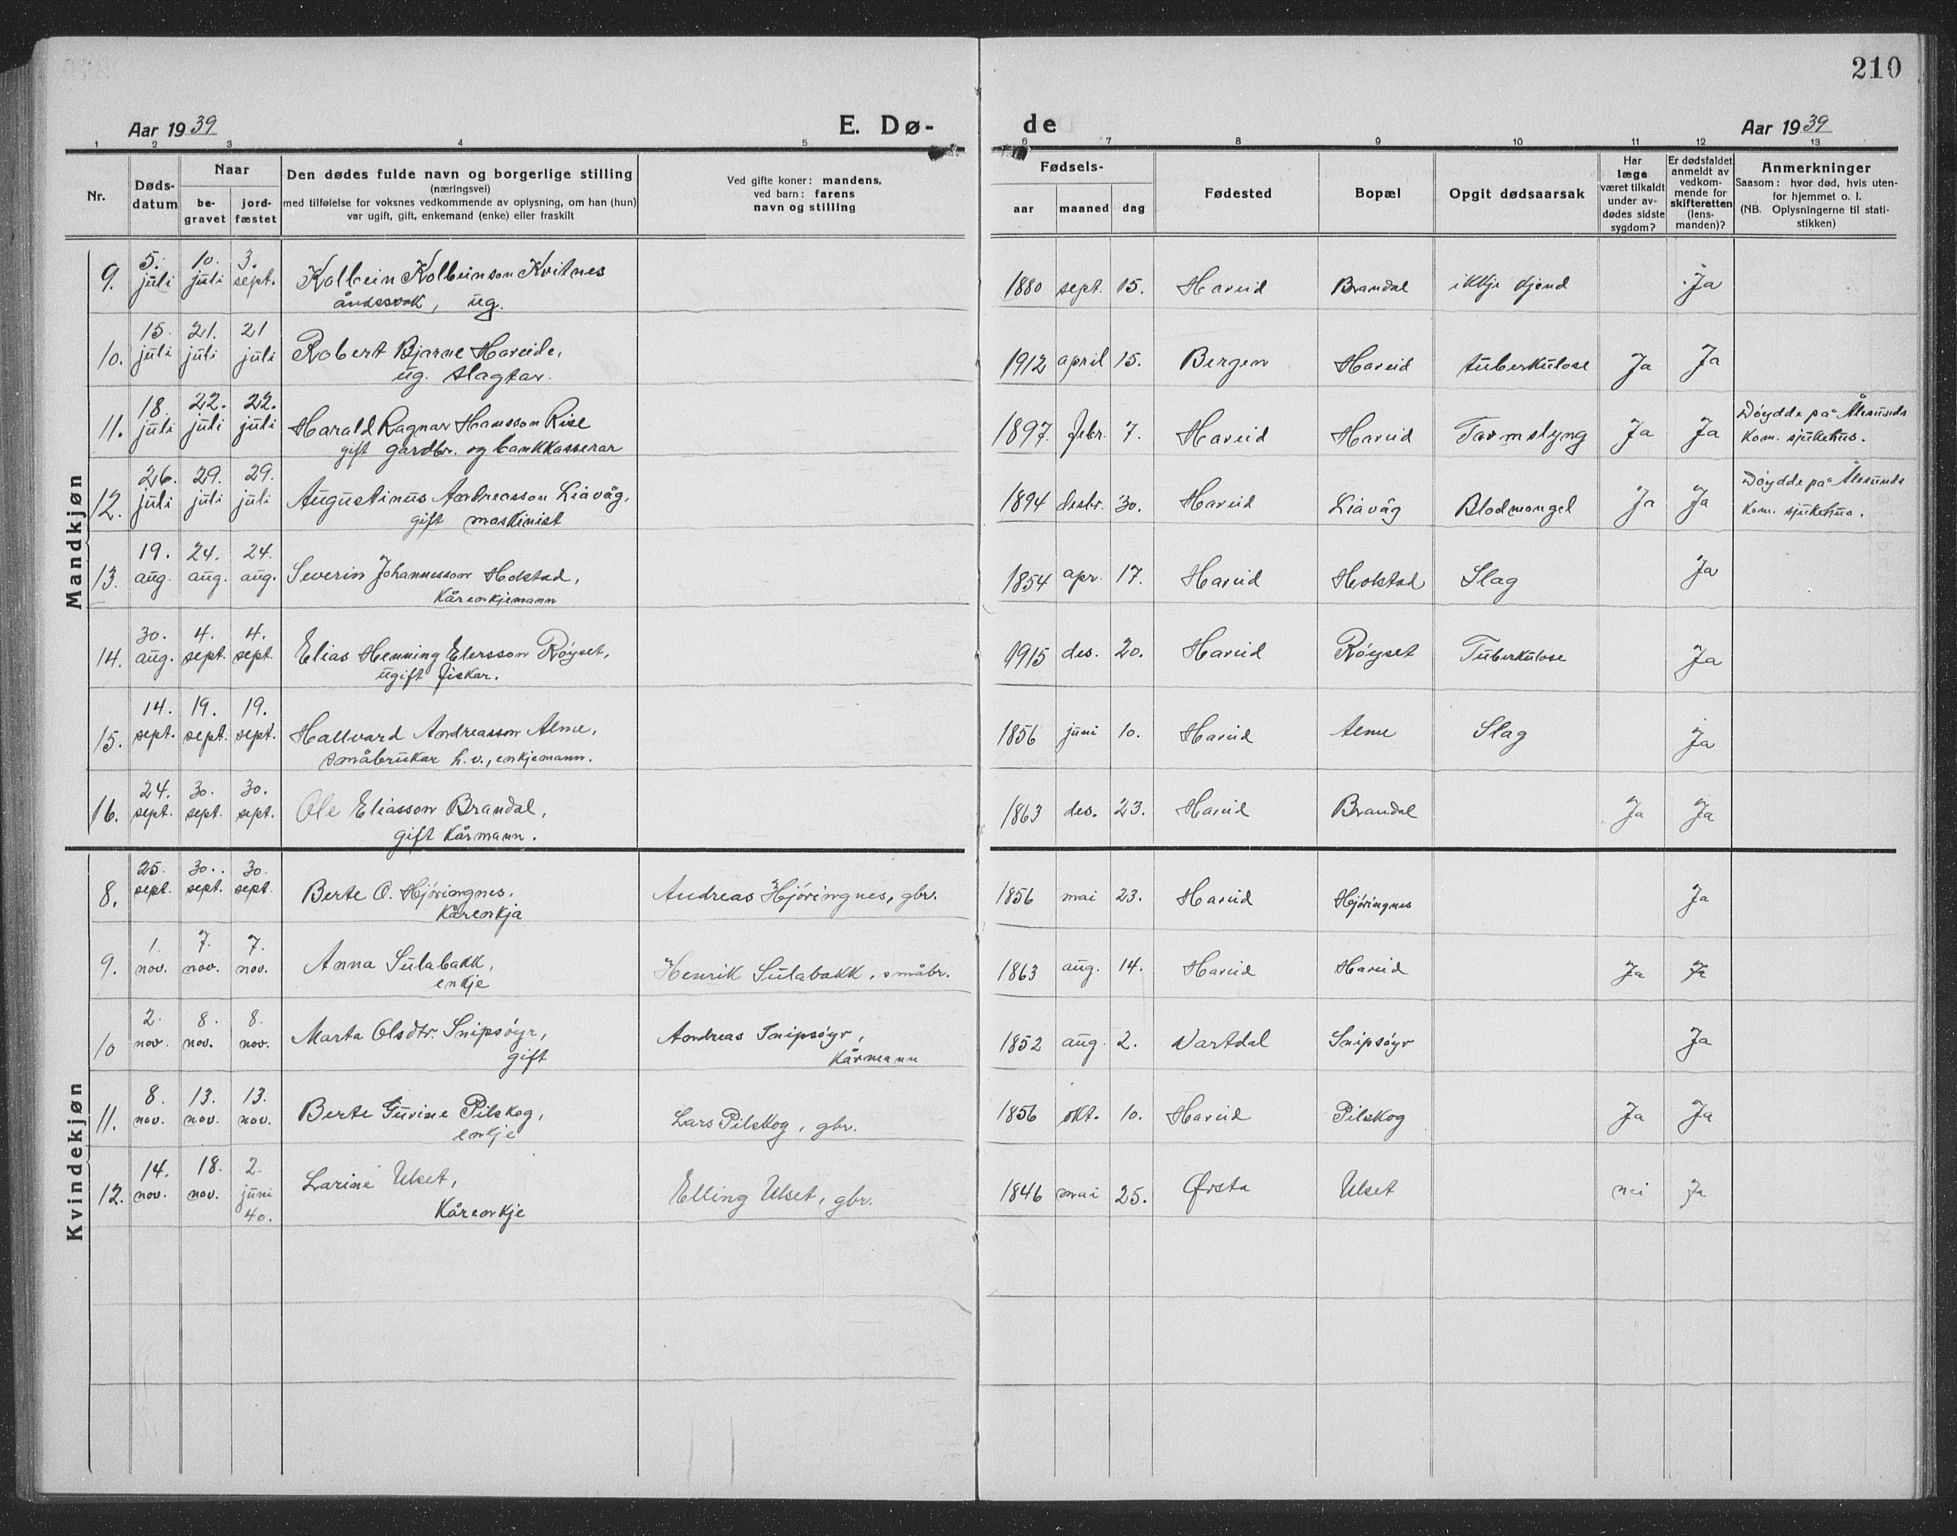 210
Aar 1939 E. Dø-
de Aar 1939
1 2 3 4 5 6 7 8 9 10 11 12 13
Nr.
Døds-
datum
Naar
be-
gravet
jord-
fæstet
Den dødes fulde navn og borgerlige stilling
(næringsvei)
med tilføielse for voksnes vedkommende av oplysning, om han (hun)
var ugift, gift, enkemand (enke) eller fraskilt
Ved gifte koner: mandens,
ved barn: farens
navn og stilling
Fødsels-
aar maaned dag
Fødested
Bopæl
Opgit dødsaarsak
Har
læge
været tilkaldt
under av-
dødes sidste
sygdom?
Er dødsfaldet
anmeldt av
vedkom-
mende for
skifteretten
(lens-
manden)?
Anmerkninger
Saasom: hvor død, hvis uten-
for hjemmet o. l.
(NB. Oplysningerne til stati-
stikken)
Mandkjøn
9. 5. juli 10. juli 3. sept. Kolbein Kolbeinson Kvitnes
åndssvak, ug.
1880 sept. 15. Hareid Brandal ikkje kjend Ja
10. 15. juli 21. juli 21 juli Robert Bjarne Hareide,
ug. slagtar.
1912 april 15. Bergen Hareid tuberkulose Ja Ja
11. 18. juli 22. juli 22. juli Harald Ragnar Hansson Rise
gift gardbr. og bankkasserar
1897 febr. 7. Hareid Hareid Tarmslyng Ja Ja Døydde på Ålesunds
Kom. sjukehus.
12. 26. juli 29. juli 29. juli Augustinus Andreasson Liavåg,
gift maskinist
1894 desbr. 30. Hareid Liavåg Blodmangel Ja Ja Døydde på Ålesunds
Kom. sjukehus.
13. 19. aug. 24. aug. 24. aug. Severin Johannesson Holstad,
Kårenkjemann
1854 apr. 17. Hareid Holstad Slag Ja
14. 30. aug. 4. sept. 4. sept. Elias Henning Elersson Røyset,
ugift fiskar.
1915 des. 20. Hareid Røyset Tuberkulose Ja
15. 14. sept. 19. sept. 19. sept. Hallvard Andreasson Alme,
småbrukar h.v., enkjemann.
1856 juni 10. Hareid Alme Slag Ja
16. 24. sept. 30. sept. 30. sept. Ole Eliasson Brandal,
gift Kårmann.
1863 des. 23. Hareid Brandal Ja Ja
Kvindekjøn
8. 25. sept. 30. sept. 30. sept. Berte O. Hjøringnes.
Kårenkja
Andreas Hjøringnes, gbr. 1856 mai 23. Hareid Hjøringnes Ja
9. 1. nov. 7. nov. 7. nov. Anna Sulabakk,
enkje
Henrik Sulabakk, småbr. 1863 aug. 14. Hareid Hareid Ja Ja
10 2. nov. 8. nov. 8. nov. Marta Olsdtr. Snipsøyr,
gift
Andreas Snipsøyr,
Kårmann
1852 aug. 2. Vartdal Snipsøyr Ja
11. 8. nov. 13. nov. 13. nov. Berte Gurine Pilskog,
enkje
Lars Pilskog, gbr. 1856 okt. 10. Hareid Pilskog Ja Ja
12. 14. nov. 18. nov. 2. juni 40. Larine Ulset,
Kårenkje
Elling Ulset, gbr. 1846 mai 25. Ørsta Ulset nei Ja